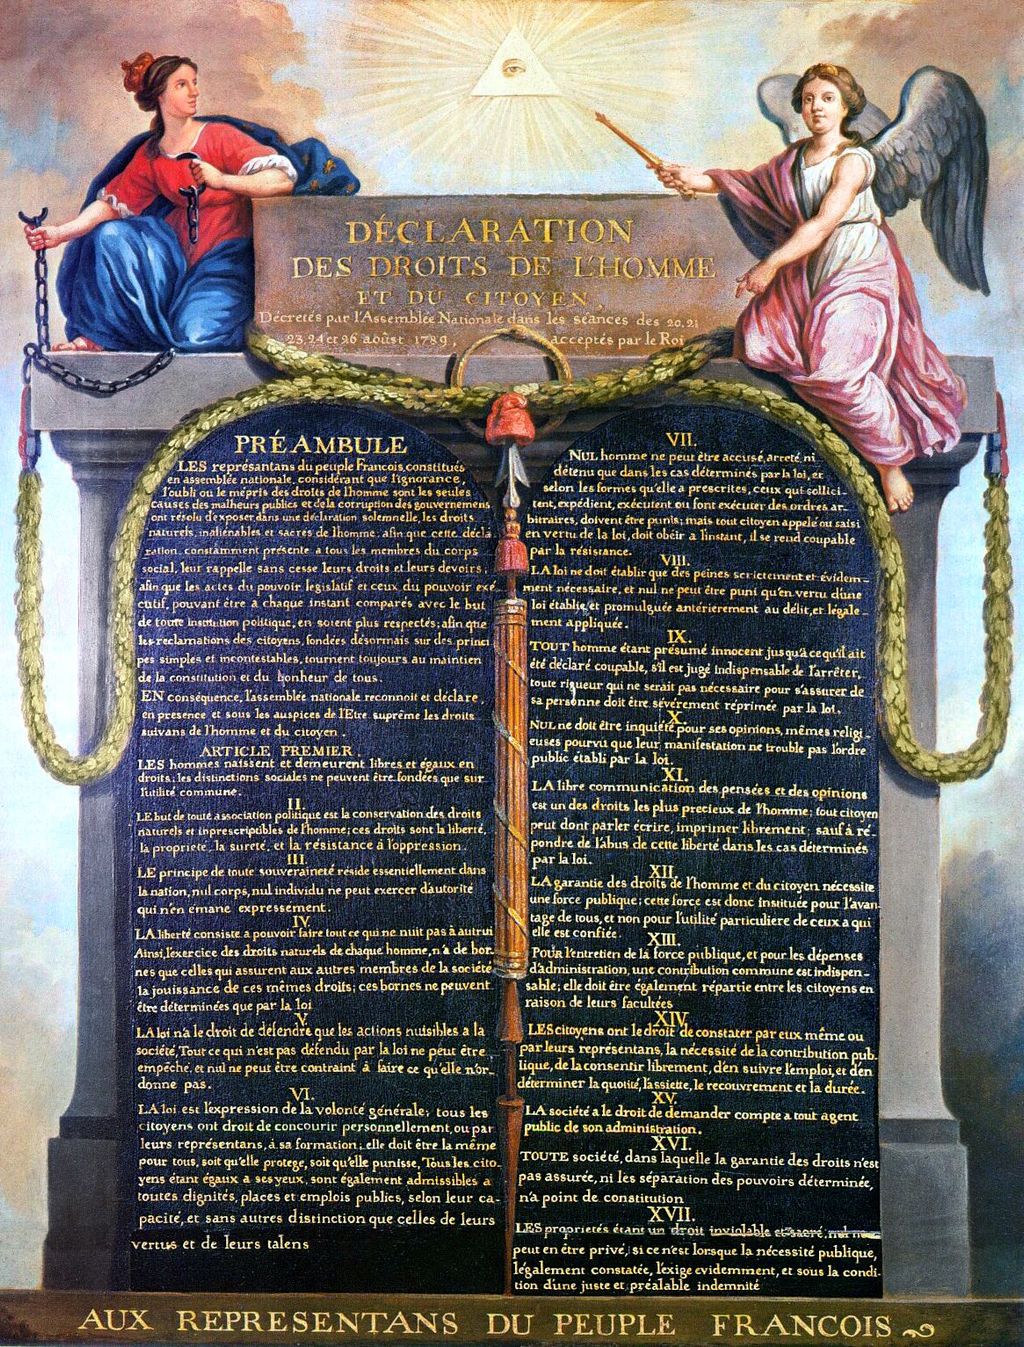 DÉCLARATION
DES DROITS DE L'HOMME
ET DU CITOYEN,
Décretés par l'Assemblée Nationale dans les séances des 20. 21
23, 24 et 26 aoûst 1789, acceptés par le Roi
PRÉAMBULE
LES représantans du peuple Francois, constitués
en assemblée nationale, considérant que l'ignorance,
l'oubli ou le mépris des droits de l'homme sont les seules
causes des malheurs publics et de la corruption des gouvernemens
ont résolu d'exposer dans une déclaration solemnelle, les droits
naturels, inaliénables et sacrés de l'homme; afin que cette décla
ration, constamment présente a tous les membres du corps
social, leur rappelle sans cesse leurs droits et leurs devoirs,
afin que les actes du pouvoir législatif et ceux du pouvoir exé
cutif, pouvant être à chaque instant comparés avec le but
de toute institution politique, en soient plus respectés; afin que
les reclamations des citoyens, fondées désormais sur des princi
pes simples et incontestables, tournent toujours au maintien
de la constitution et du bonheur de tous.
EN conséquence, l'assemblée nationale reconnoit et déclare,
en presence et sous les auspices de l'Etre suprême les droits
suivans de l'homme et du citoyen.
ARTICLE PREMIER.
LES hommes naissent et demeurent libres et égaux en
droits; les distinctions sociales ne peuvent être fondées que sur
l'utilité commune.
II.
LE but de toute association politique est la conservation des droits
naturels et inprescriptibles de l'homme; ces droits sont la liberté,
la propriété, la sureté, et la résistance à l'oppression.
III.
LE principe de toute souveraineté réside essentiellement dans
la nation, nul corps, nul individu ne peut exercer d'autorité
qui n'en émane expressement.
IV.
LA liberté consiste a pouvoir faire tout ce qui ne nuit pas à autrui
Ainsi, l'exercice des droits naturels de chaque homme, n'a de bor-
nes que celles qui assurent aux autres membres de la société
la jouissance de ces mêmes droits; ces bornes ne peuvent
être déterminées que par la loi
V.
LA loi n'a le droit de défendre que les actions nuisibles a la
société, Tout ce qui n'est pas défendu par la loi ne peut être
empêché, et nul ne peut être contraint à faire ce qu'elle n'or-
donne pas.
VI.
LA loi est l'expression de la volonté générale; tous les
citoyens ont droit de concourir personnellement, ou par
leurs représentans, à sa formation; elle doit être la même
pour tous, soit qu'elle protege, soit qu'elle punisse, Tous les cito-
yens étant égaux a ses yeux, sont également admissibles a
toutes dignités, places et emplois publics, selon leur ca-
pacité, et sans autres distinction que celles de leurs
vertus et de leurs talens
VII.
NUL homme ne peut être accusé, arreté, ni
détenu que dans les cas déterminés par la loi, et
selon les formes qu'elle a prescrites, ceux qui sollici-
tent, expédient, exécutent ou font exécuter des ordres ar-
bitraires, doivent être punis; mais tout citoyen appelé ou saisi
en vertu de la loi, doit obéir a l'instant, il se rend coupable
par la résistance.
VIII.
LA loi ne doit établir que des peines strictement et évidem-
ment nécessaire, et nul ne peut être puni qu'en vertu d'une
loi établie, et promulguée antérierement au délit, et légale-
ment appliquée.
IX.
TOUT homme étant présumé innocent jusqu'a ce qu'il ait
été déclaré coupable, s'il est jugé indispensable de l'arrêter,
toute rigueur qui ne serait pas nécessaire pour s'assurer de
sa personne doit être sévèrement réprimée par la loi.
X.
NUL ne doit être inquiété pour ses opinions, mêmes religi-
euses pourvu que leur manifestation ne trouble pas l'ordre
public établi par la loi.
XI.
LA libre communication des pensées et des opinions
est un des droits les plus precieux de l'homme; tout citoyen
peut dont parler écrire, imprimer librement; sauf à ré-
pondre de l'abus de cette liberté dans les cas déterminés
par la loi.
XII.
LA garantie des droits de l'homme et du citoyen nécessite
une force publique; cette force est donc instituée pour l'avan-
tage de tous, et non pour l'utilité particuliere de ceux a qui
elle est confiée.
XIII.
Pour l'entretien de la force publique, et pour les dépenses
d'administration, une contribution commune est indispen-
sable; elle doit être également répartie entre les citoyens en
raison de leurs facultées
XIV.
LES citoyens ont le droit de constater par eux même ou
par leurs représentans, la nécessité de la contribution pub-
lique, de la consentir librement, d'en suivre l'emploi, et d'en
déterminer la quotité, l'assiette, le recouvrement et la durée.
XV.
LA société a le droit de demander compte a tout agent
public de son administration.
XVI.
TOUTE société, dans laquelle la garantie des droits n'est
pas assurée, ni les séparation des pouvoirs déterminée,
n'a point de constitution
XVII.
LES proprietés étant un droit inviolable et sacré, nul ne
peut en être privé, si ce n'est lorsque la nécessité publique,
légalement constatée, l'exige evidemment, et sous la condi-
tion d'une juste et préalable indemnité
AUX REPRESENTANS DU PEUPLE FRANCOIS